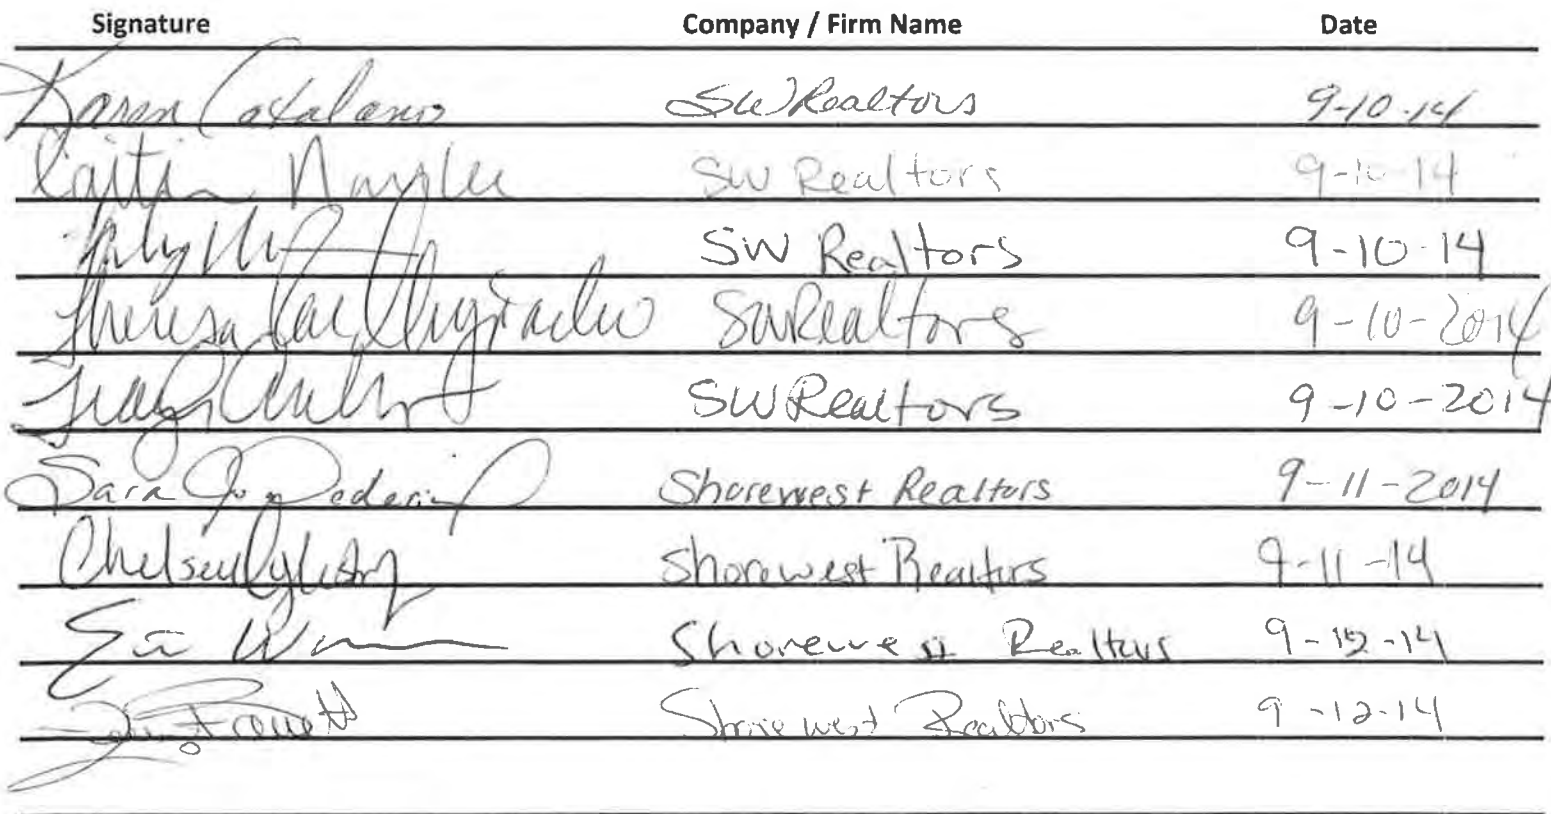 Signature Company / Firm Name Date
Karen Catalano SW Realtors 9-10-14
Caitlin SW Realtors 9-10-14
SW Realtors 9-10-14
Theresa SW Realtors 9-10-2014
SW Realtors 9-10-2014
Sara Jo Shorewest Realtors 9-11-2014
Chelsea Shorewest Realtors 9-11-14
Shorewest Realtors 9-12-14
Shorewest Realtors 9-12-14